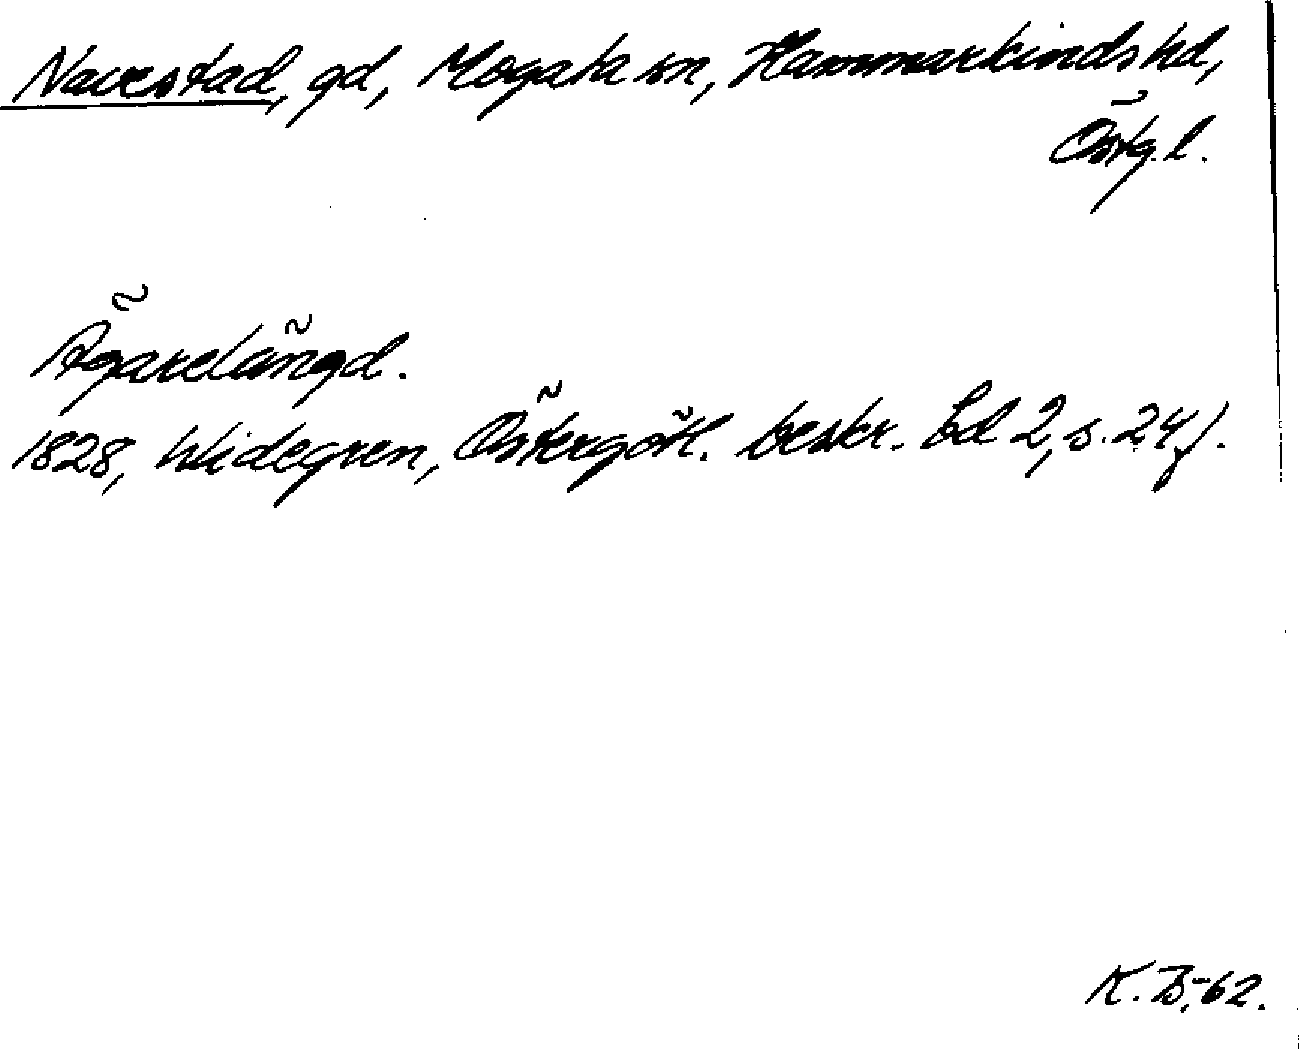 Navestad, gd, Mogata sn, Hammarkinds hd,
Östg. l.
Ägarelängd.
1828, Widegren, Östergötl. beskr. bd 2, s. 24 f.
K. B. -62.